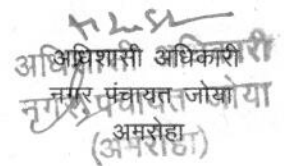 अधिशासी अधिकारी
नगर पंचायत जोया
अमरोहा
अधिशासी अधिकारी
नगर पंचायत जोया
(अमरोहा)